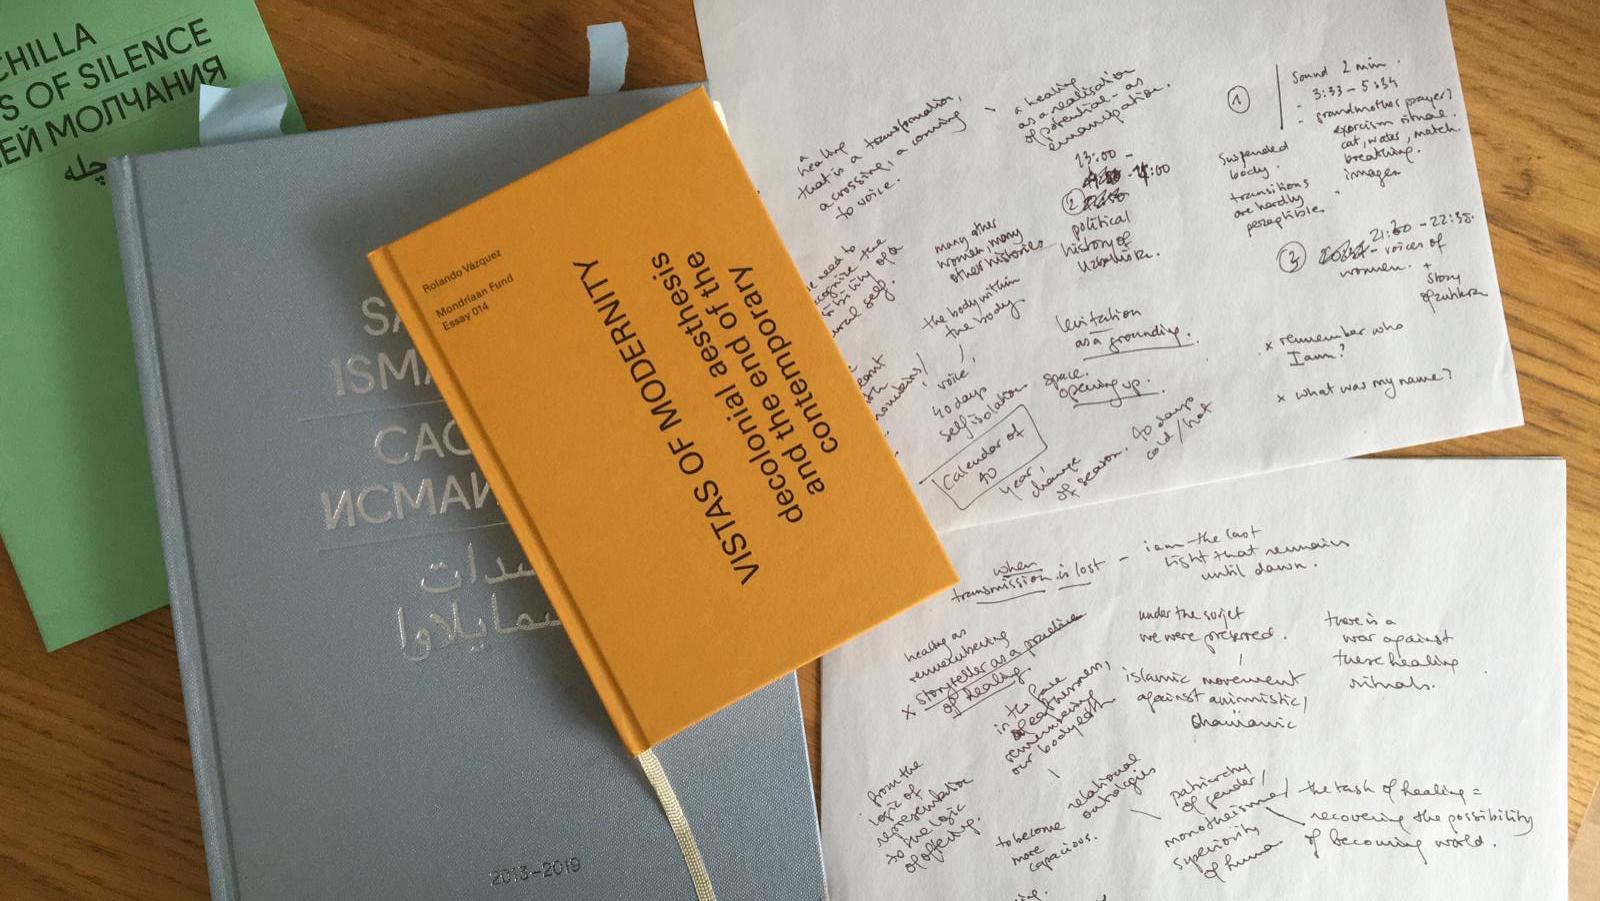 CHILLA
S OF SILENCE
ЕЙ МОЛЧАНИЯ
چله
SA
ISMA
САО
ИСМАИ
2013–2019
Rolando Vázquez
Mondriaan Fund
Essay 014
VISTAS OF MODERNITY
decolonial aesthesis
and the end of the
contemporary
a
healing
that is a transformation,
a crossing, a coming
to voice.
a healing
as a realisation
of potential - as
emancipation.
13:00 -
②
political
history of
Uzbekistn.
①
Sound 2 min.
- 3:33 - 5:34
- grandmother prayer?
exorcism ritual.
cat, water, match
breathing.
images
suspended
body.
transitions
are hardly
perceptible.
③
21:20 - 22:35.
- voices of
women.
+
story
of zukhra
x remember who
I am?
x what was my name?
need to
the
of a
self.
many other
women, many
other histories
the body within
the body.
levitation
as a grounding.
voice,
space.
opening up.
40 days
self isolation
Calendar of
40
year,
change
of season.
40 days
cold / hot
when
transmission is lost -
i am - the last
light that remains
until dawn.
healing as
remembering
x storyteller as a practice
of healing.
under the soviet
we were preferred.
there is a
war against
these healing
rituals.
in the face
of earthlessness,
remembering
our body earth
islamic movement
against animistic /
shamanic
from the
logic of
representation
to the logic
of offering.
to become
more
capacious.
relational
ontologies
patriarchy
of gender /
monotheism /
superiority
of human
the task of healing =
recovering the possibility
of becoming world.